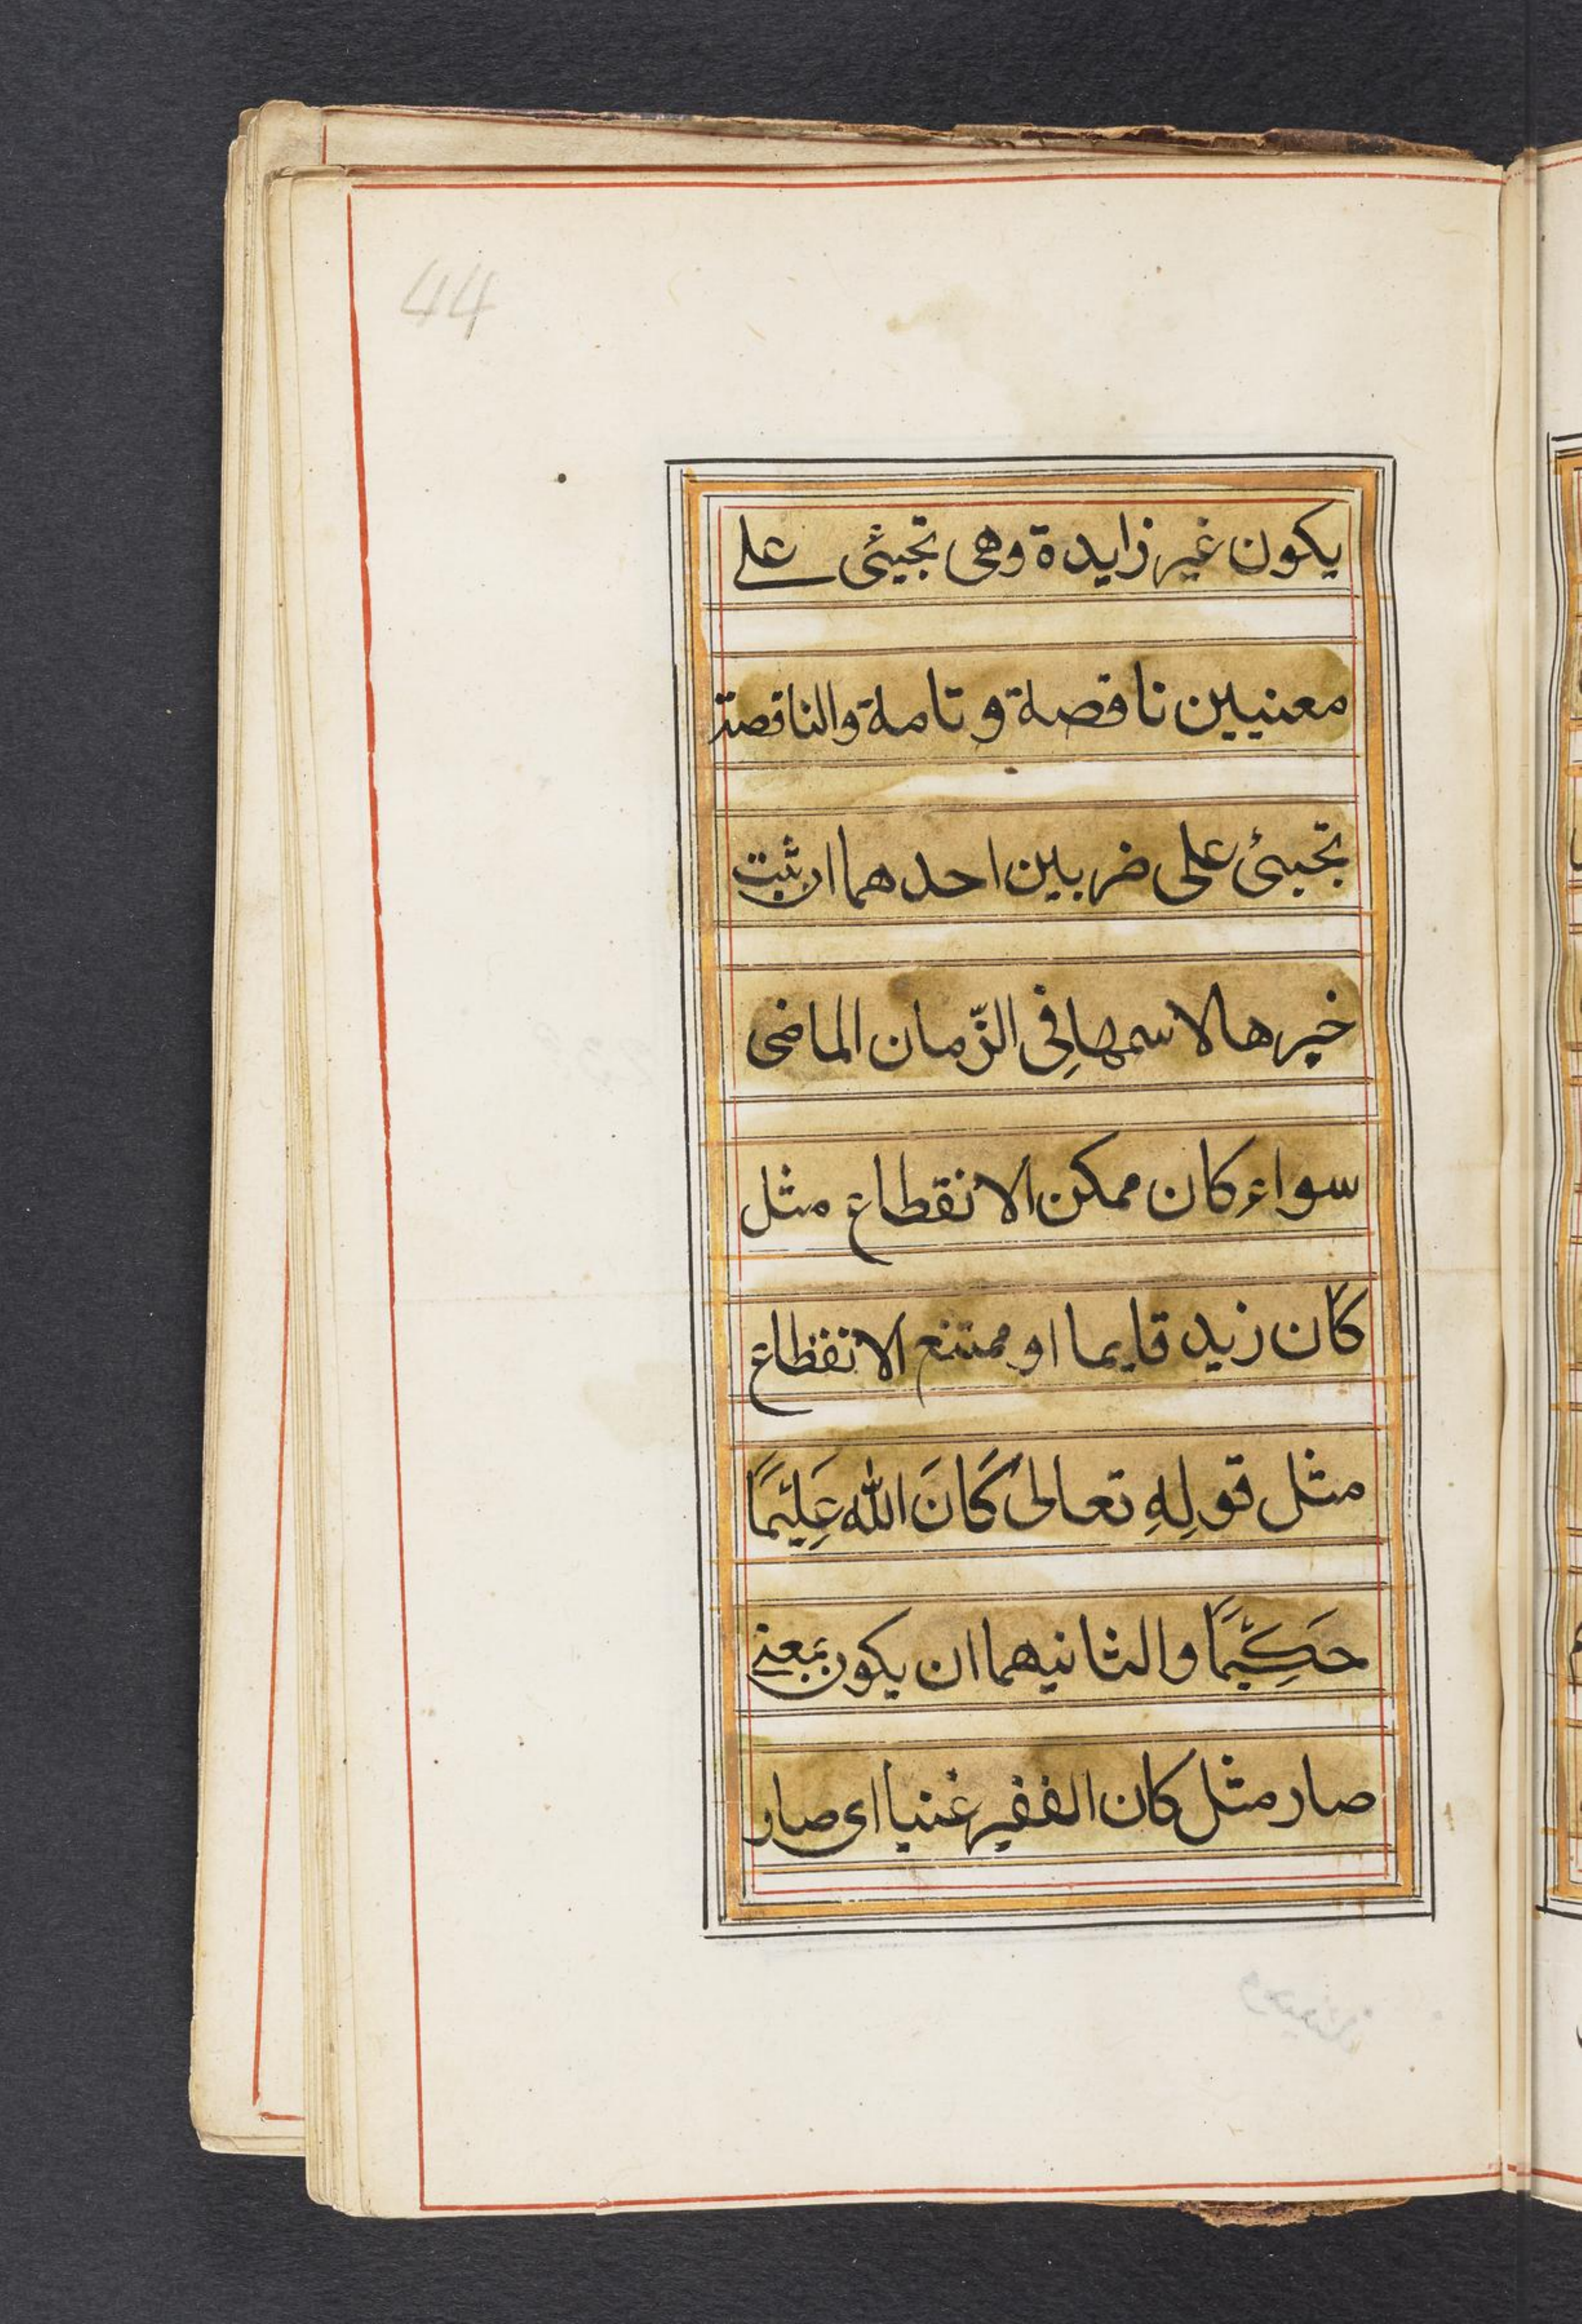 44
يكون غير زايدة وهى تجيئى على
معنيين ناقصة و تامة والناقصة
تجيئ على ضربين احدهما ان ثبت
خبرها لاسمها فِى الزّمان الماضى
سواء كان ممكن الانقطاع مثل
كان زيد قايما او ممتنع الانقطاع
مثل قولِهِ تعالىٰ كَانَ الله عَلِيْمًا
حَكِيْمًا والثانيهما ان يكون بمعنى
صار مثل كان الفقير غنيا اى صار